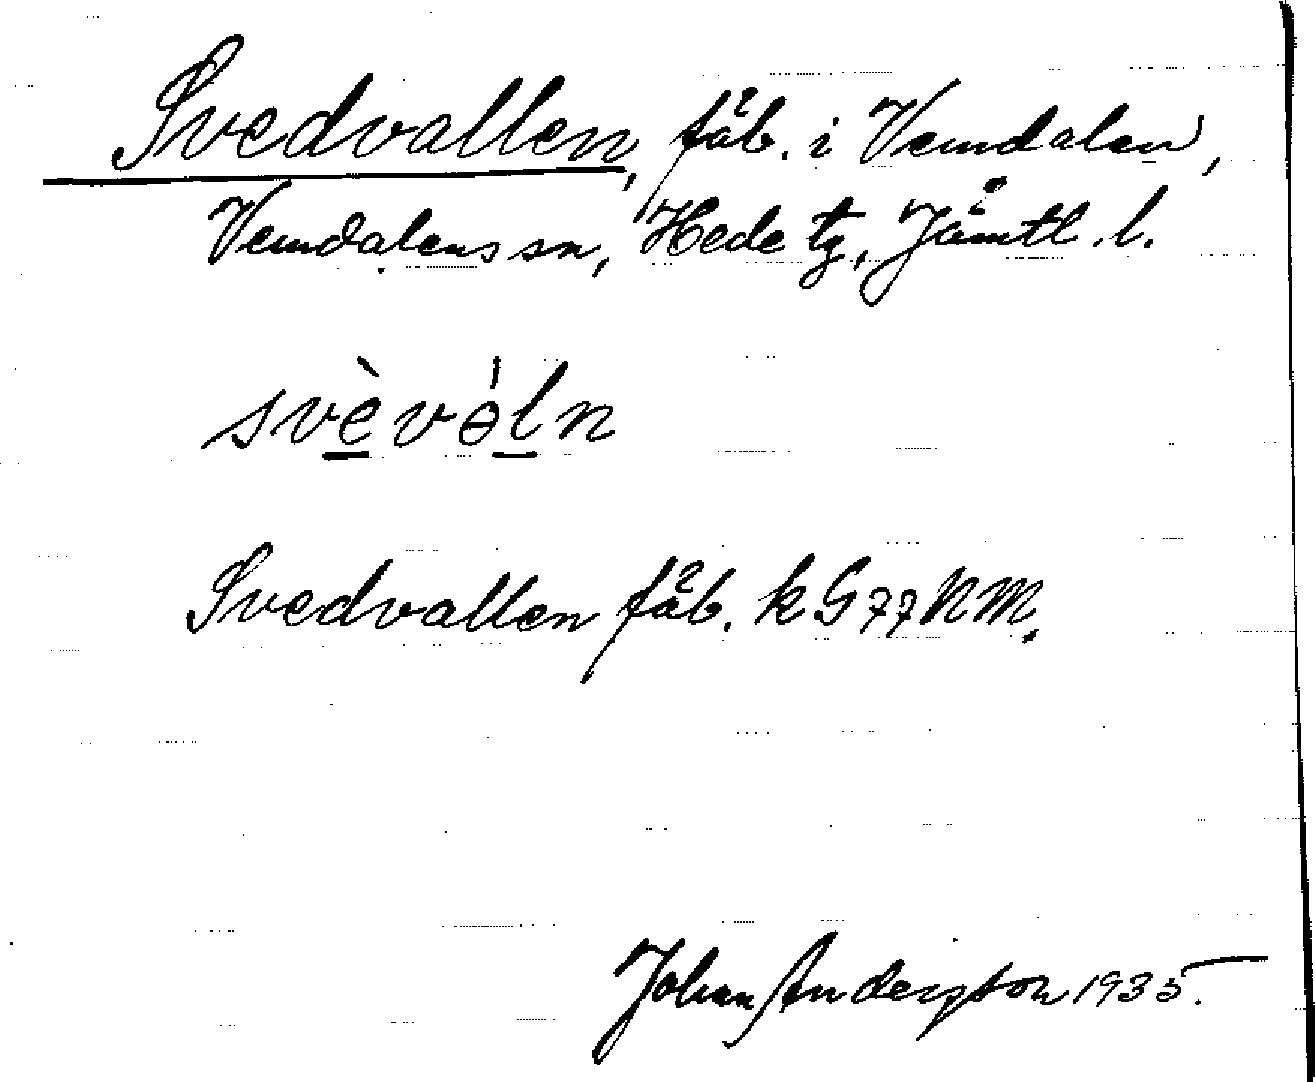 Svedvallen, fäb. i Vemdalen,
Vemdalens sn, Hede tg, Jämtl. l.
svèvөln
Svedvallen fäb. k G77 NM.
Johan Anderson 1935.